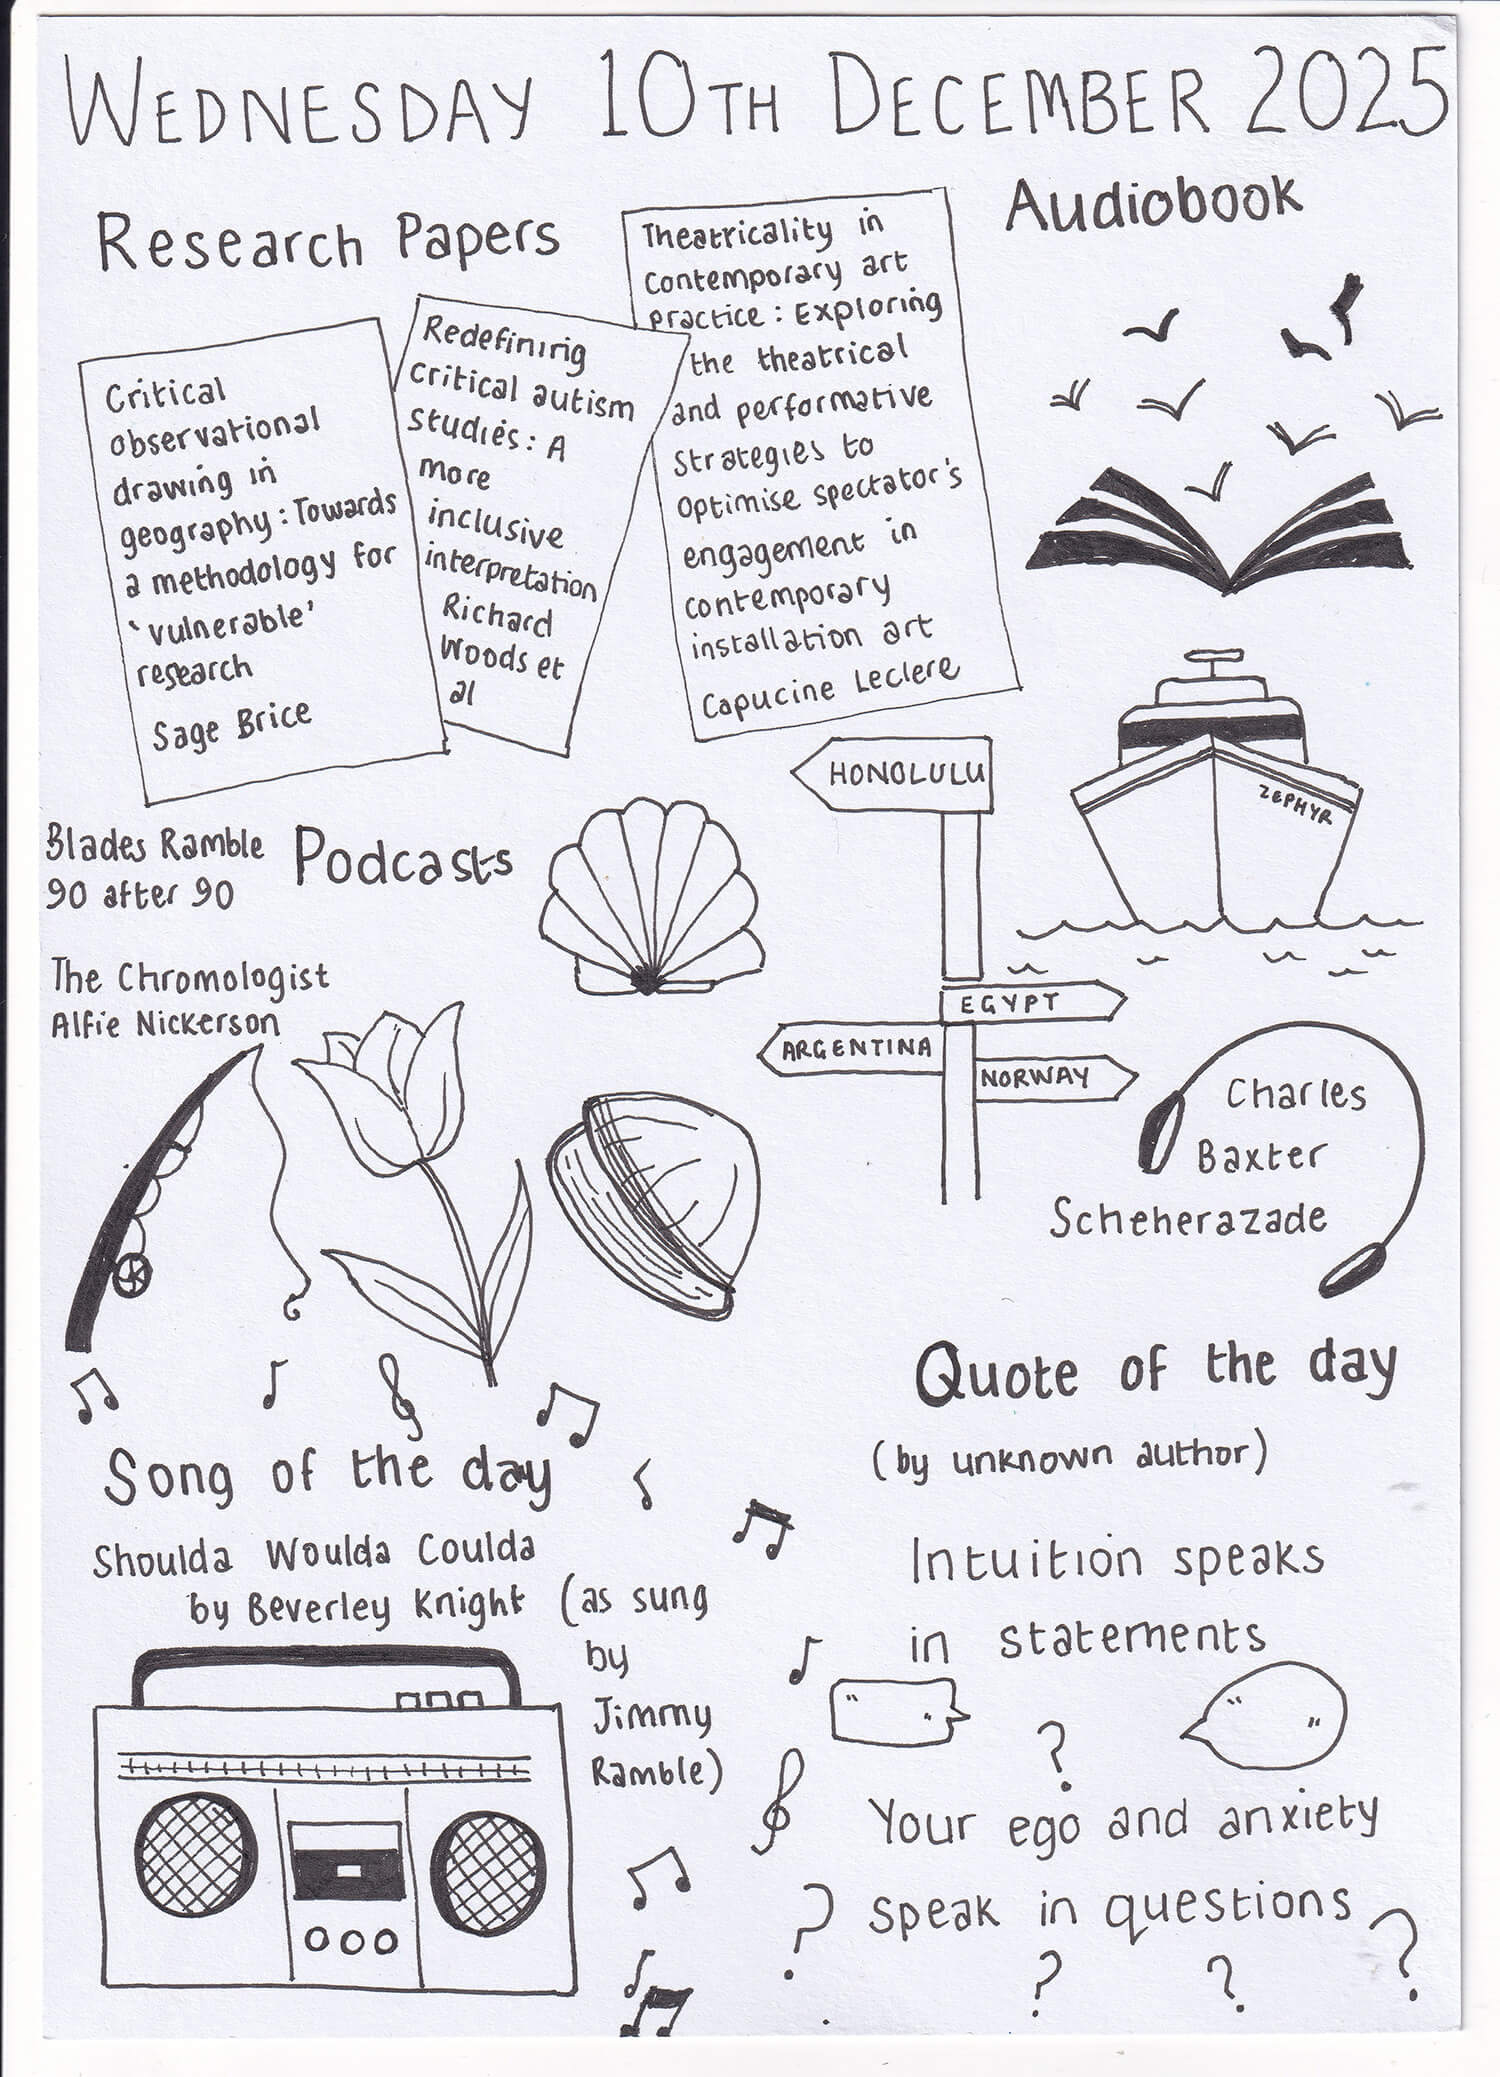 WEDNESDAY 10TH DECEMBER 2025
Research Papers
Critical
observational
drawing in
geography: Towards
a methodology for
'vulnerable'
research
Sage Brice
Redefining
critical autism
studies: A
more
inclusive
interpretation
Richard
Woods et
al
Theatricality in
contemporary art
practice: Exploring
the theatrical
and performative
strategies to
optimise spectator's
engagement in
contemporary
installation art
Capucine Leclere
Audiobook
ZEPHYR
HONOLULU
EGYPT
ARGENTINA
NORWAY
Charles
Baxter
Scheherazade
Podcasts
Blades Ramble
90 after 90
The Chromologist
Alfie Nickerson
Song of the day
Shoulda Woulda Coulda
by Beverley Knight (as sung
by
Jimmy
Ramble)
Quote of the day
(by unknown author)
Intuition speaks
in statements
" "
" "
?
Your ego and anxiety
speak in questions
? ? ? ?